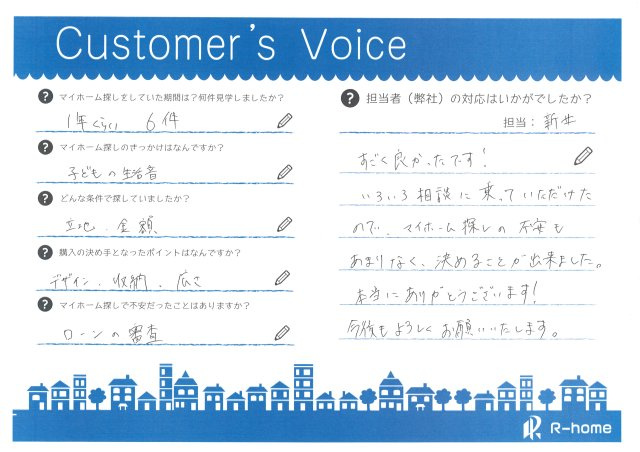 Customer's Voice
? マイホーム探しをしていた期間は?何件見学しましたか?
1年くらい 6件
? マイホーム探しのきっかけはなんですか?
子どもの生活音
? どんな条件で探していましたか?
立地、金額
? 購入の決め手となったポイントはなんですか?
デザイン、収納、広さ
? マイホーム探しで不安だったことはありますか?
ローンの審査
? 担当者(弊社)の対応はいかがでしたか?
担当:新井
すごく良かったです!
いろいろ相談に乗っていただけた
ので、マイホーム探しの不安も
あまりなく、決めることが出来ました。
本当にありがとうございます!
今後もよろしくお願いいたします。
R-home